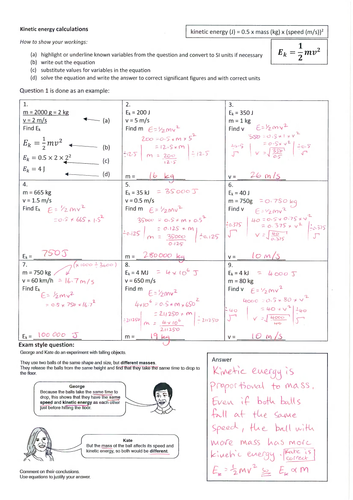 Kinetic energy calculations
kinetic energy (J) = 0.5 x mass (kg) x (speed (m/s))²
How to show your workings:
E_k = 1/2 mv²
(a) highlight or underline known variables from the question and convert to SI units if necessary
(b) write out the equation
(c) substitute values for variables in the equation
(d) solve the equation and write the answer to correct significant figures and with correct units
Question 1 is done as an example:
1.
m = 2000 g = 2 kg
v = 2 m/s (a)
Find Eₖ
Eₖ = 1/2 mv² (b)
Eₖ = 0.5 × 2 × 2² (c)
Eₖ = 4 J (d)
2.
Eₖ = 200 J
v = 5 m/s
Find m E=½mv²
200 = 0.5 × m × 5²
÷12.5 = 12.5 × m ÷12.5
m = 200
12.5
m = 16 kg
3.
Eₖ = 350 J
m = 1 kg
Find v E=½mv²
350 = 0.5 × 1 × v²
= 0.5 × v²
v = √350
0.5
v = 26 m/s
4.
m = 665 kg
v = 1.5 m/s
Find Eₖ E=½mv²
= 0.5 × 665 × 1.5²
Eₖ = 750 J
5.
Eₖ = 35 kJ = 35000 J
v = 0.5 m/s
Find m E=½mv²
35000 = 0.5 × m × 0.5²
÷0.125 = 0.125 × m ÷0.125
m = 35000
0.125
m = 280000 kg
6.
Eₖ = 40 J
m = 750g = 0.750 kg
Find v E=½mv²
40 = 0.5 × 0.75 × v²
= 0.375 × v²
v = √40
0.375
v = 10 m/s
7.
m = 750 kg
v = 60 km/h = 16.7 m/s
Find Eₖ E=½mv²
= 0.5 × 750 × 16.7²
Eₖ = 100 000 J
8.
Eₖ = 4 MJ = 4×10⁶ J
v = 650 m/s
Find m E=½mv²
4×10⁶ = 0.5 × m × 650²
÷211250 = 211250 × m ÷211250
m = 4×10⁶
211250
m = 19 kg
9.
Eₖ = 4 kJ = 4000 J
m = 80 kg
Find v E=½mv²
4000 = 0.5 × 80 × v²
= 40 × v²
v = √4000
40
v = 10 m/s
Exam style question:
George and Kate do an experiment with falling objects.
They use two balls of the same shape and size, but different masses.
They release the balls from the same height and find that they take the same time to drop to
the floor.
George
Because the balls take the same time to
drop, this shows that they have the same
speed and kinetic energy as each other
just before hitting the floor.
Kate
But the mass of the ball affects its speed and
kinetic energy, so both would be different.
Comment on their conclusions.
Use equations to justify your answer.
Answer
Kinetic energy is
proportional to mass.
Even if both balls
fall at the same
speed, the ball with
more mass has more
kinetic energy. Kate is
correct
Eₖ = ½mv² ⇒ Eₖ ∝ m